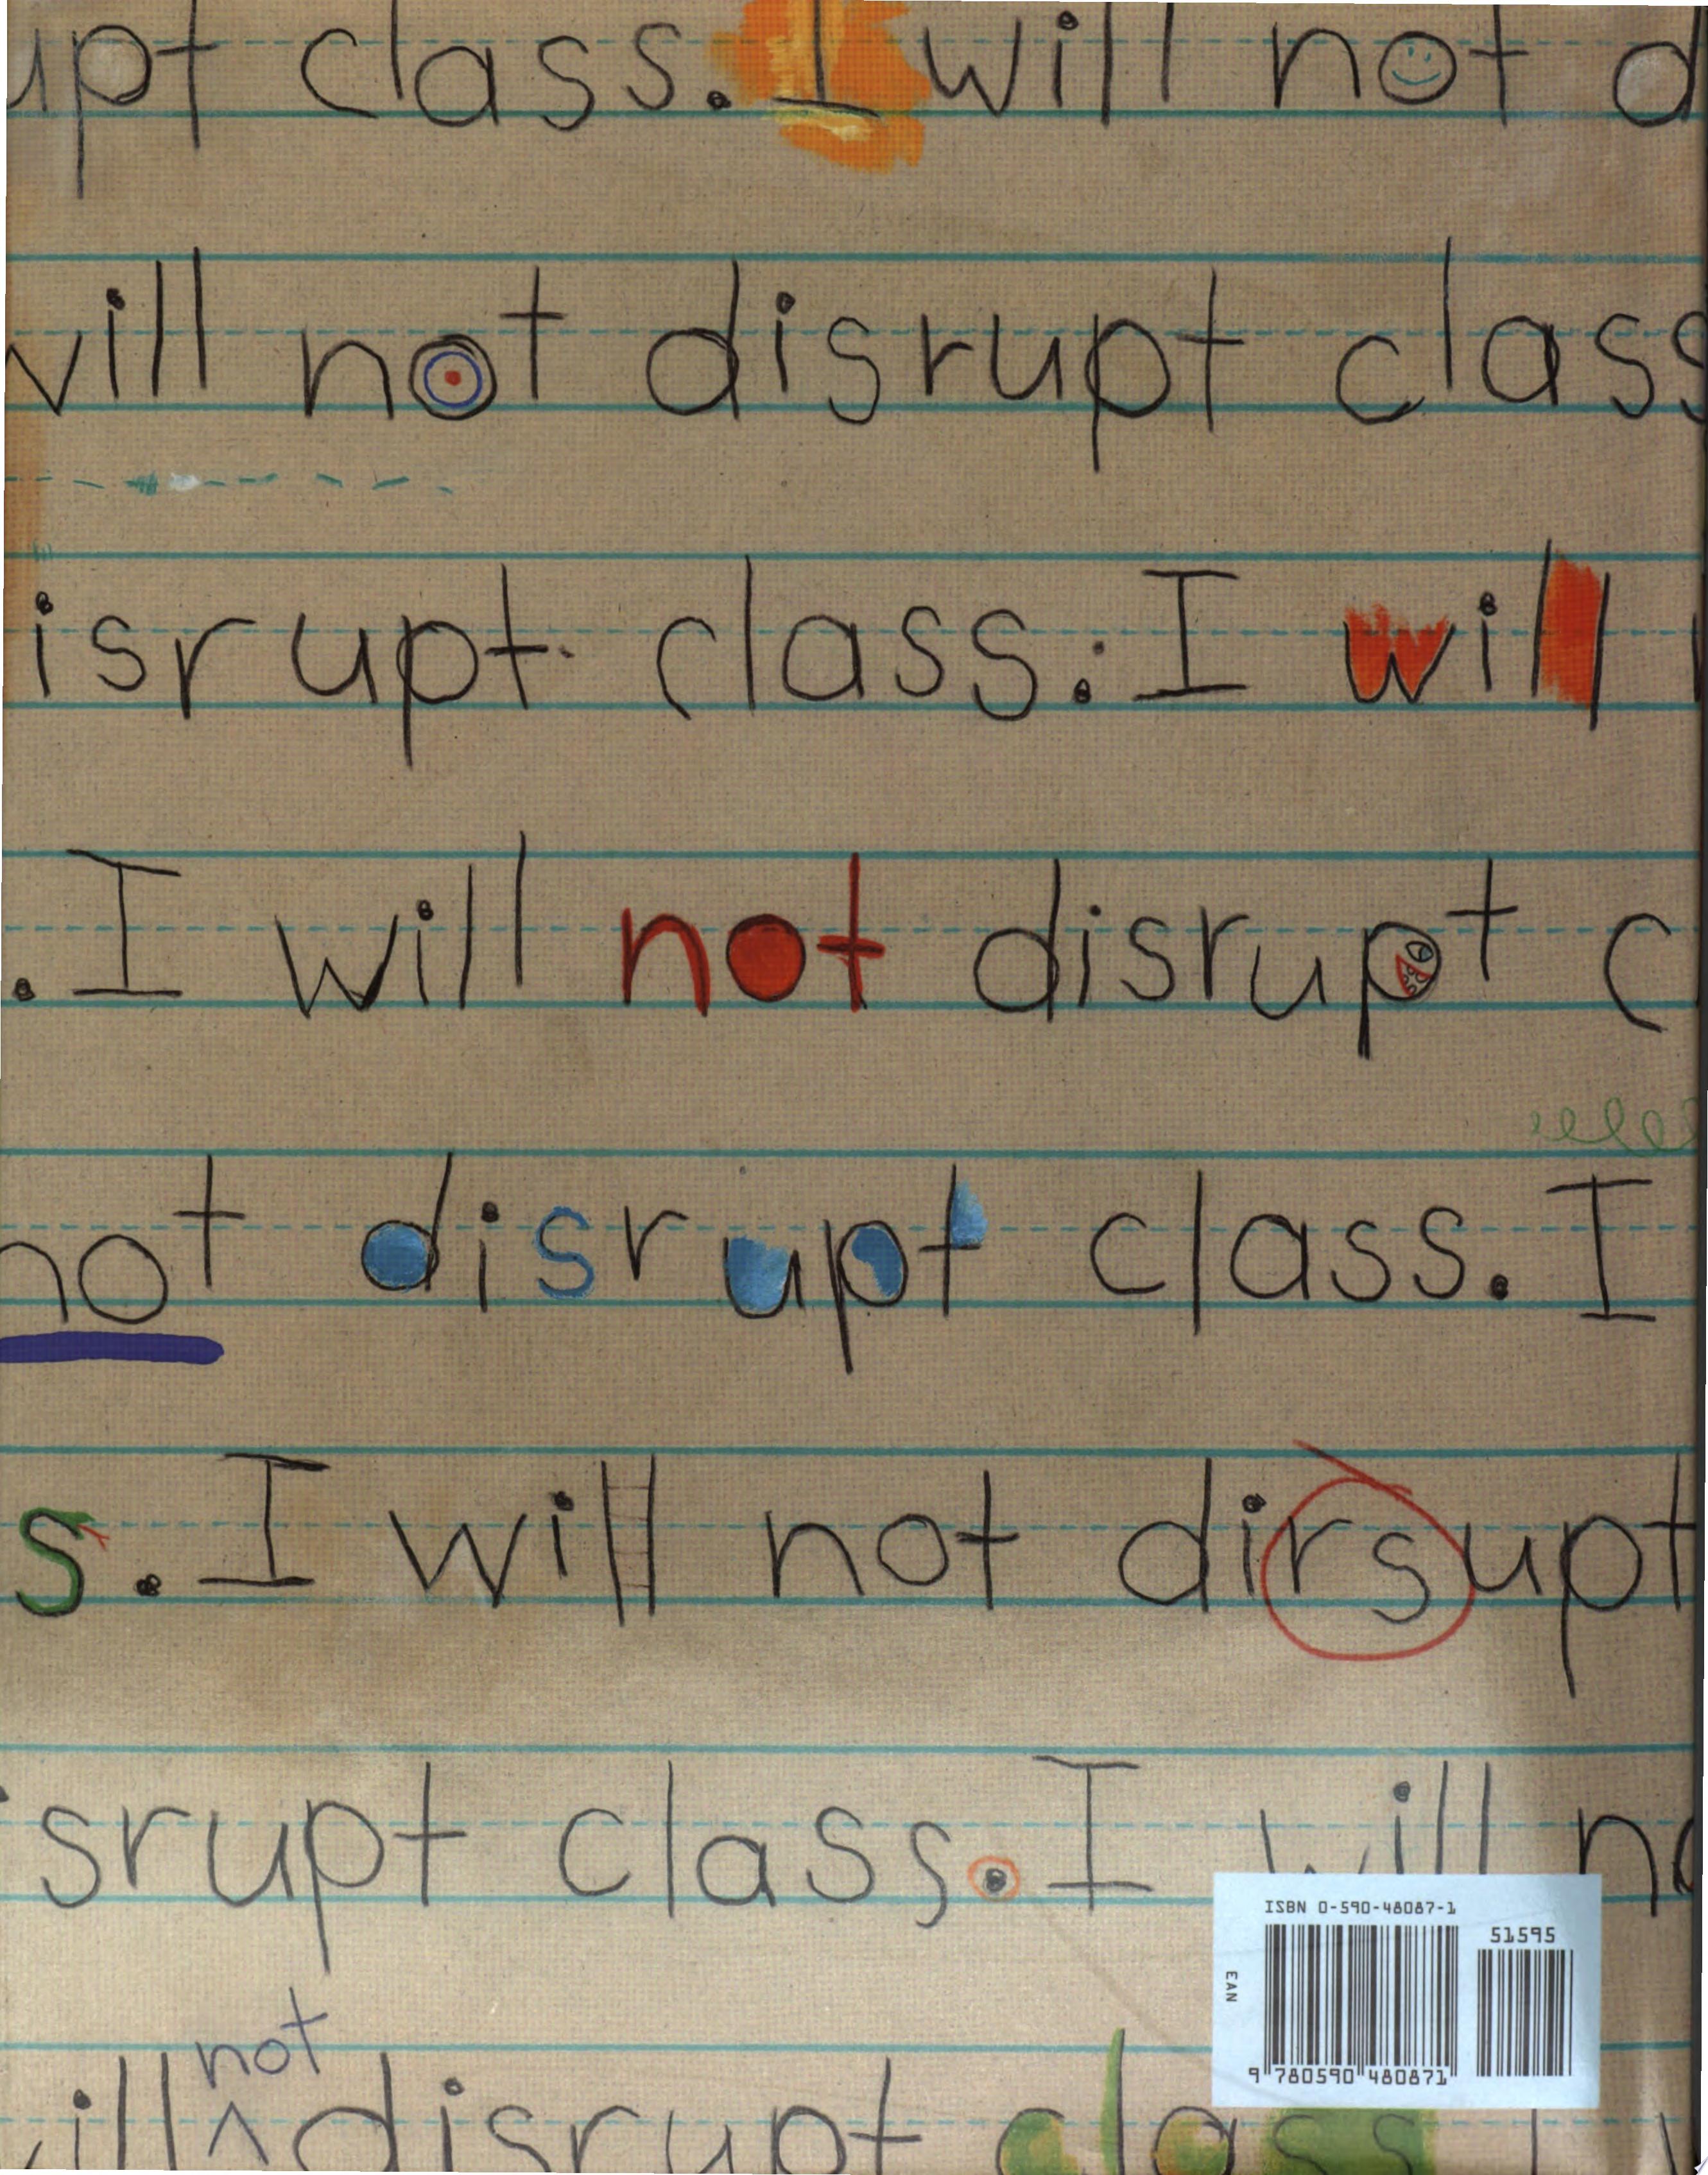 upt class. I will not d
will not disrupt class
isrupt class. I will
. I will not disrupt c
not disrupt class. I
s. I will not dirsupt
isrupt class. I will no
ISBN 0-590-48087-1
51595
EAN
9 780590 480871
not
will ^ disrupt class I w